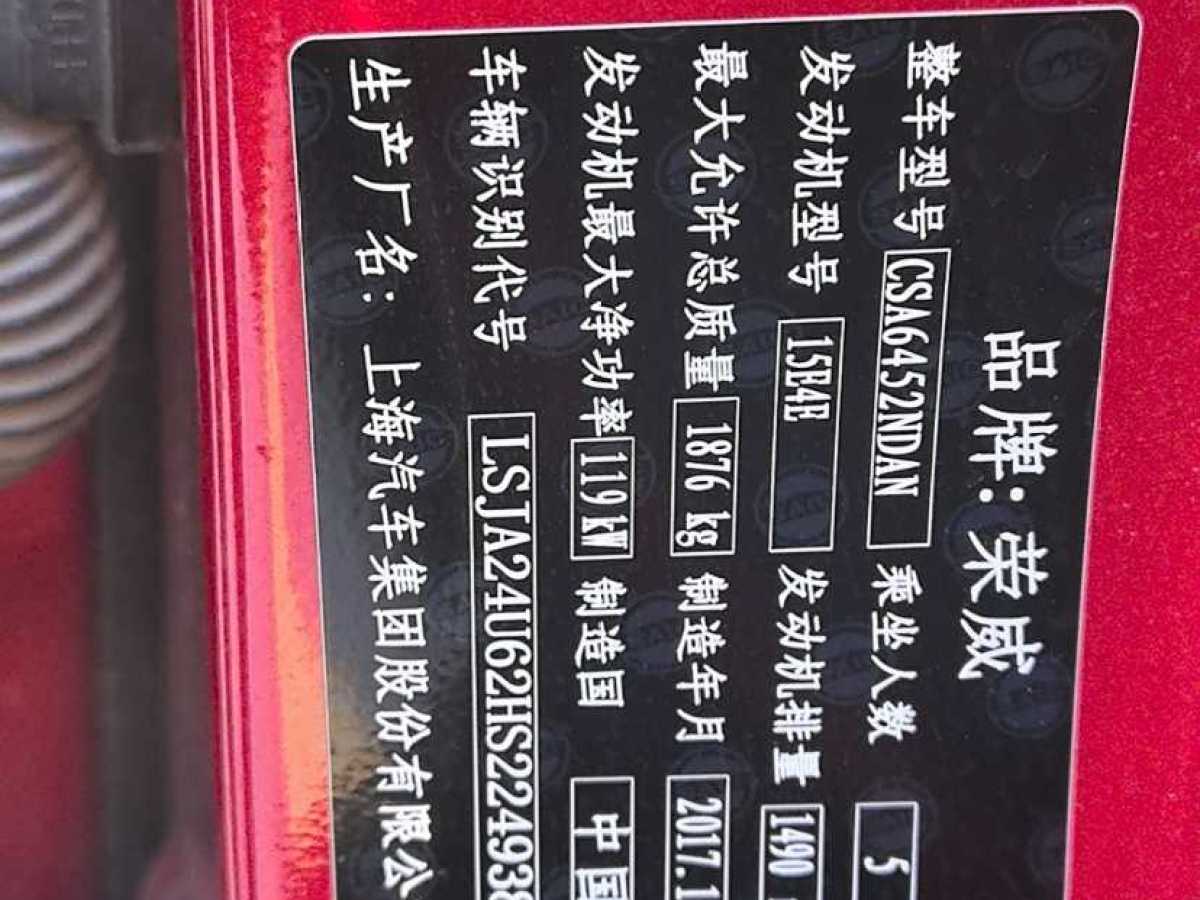 品牌:荣威
整车型号 CSA6452NDAN 乘坐人数 5
发动机型号 15E4E 发动机排量 1490
最大允许总质量 1876 kg 制造年月 2017.1
发动机最大净功率 119kW 制造国 中国
车辆识别代号 LSJA24U62HS224938
生产厂名:上海汽车集团股份有限公